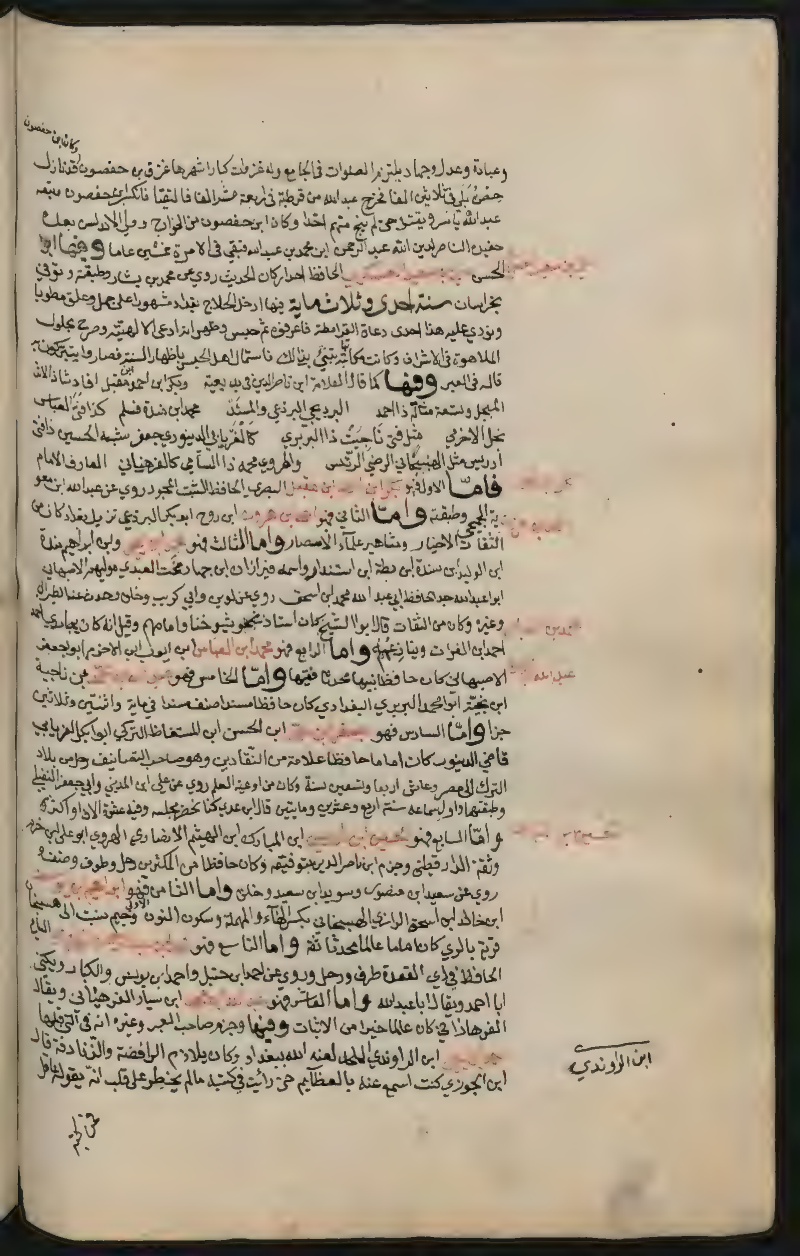 وكان ابن حفصون
وعبادة وعدل وجهاد يلتزم الصلوات في الجامع وله غزوات كبار اشهرها غزوة بن حفصون قد نازل
حصن بلي في ثلاثين الفا فخرج عبد الله من قرطبة في اربعة عشر الفا فالتقيا فانكسر ابن حفصون وتبعه
عبد الله ياسر ويقتل حتى لم ينج منهم احد وكان ابن حفصون من الخوارج وولي الاندلس بعده
حفيده الناصر لدين الله عبد الرحمن ابن محمد بن عبد الله فبقي في الامرة خمسين عاما وفيها ابو
الحسن الحافظ احد اركان الحديث روى عن محمد بن بشار وطبقته وتوفي
بخراسان سنة احدى وثلاث ماية فيها ادخل الحلاج بغداد مشهورا على جمل وعلق مطوبا
ونودي عليه هذا احدى دعاة القرامطة فاعرفوه ثم حبس وظهر انه ادعى الالهية وصرح بحلول
اللاهوت في الاشراف وكانت مكاتبه تنبي بذلك فاستمال اهل الحبس باظهار السنة فصاروا يتبركون به
قاله في العبر وفيها كما قال العلامة ابن ناصر الدين في بديعية وبكر ابن احمد بن مقبل افاد
المبجل وتسعة مثاله ذا احمد البرديجي البرذعي والمسند محمد ابن مندة فسلم كذا فتى العباس
نجل الاخرمي مثل فتى ناجية ذا البربري كالفريابي الدينوري جعفر شبه الحسين ذا فتى
ادريس مثل الهسنجاني الرضي الرئيس والهروي محمد ذا السامي كالفرهياني العارف الامام
فاما الاول فهو بكر ابن احمد ابن مقبل البصري الحافظ الثبت المجود روى عن عبد الله ابن معو
ية الجمحي وطبقته واما الثاني فهو احمد بن هرون ابن روح ابو بكر البرذعي نزيل بغداد كان من
الثقات الاخيار ومشاهير علماء الامصار واما الثالث فهو ابن ابراهيم مندة
ابن الوليد ابن سندة ابن بطة ابن استندار واسمه فيرزان ابن جهار بخت العبدي مولاهم الاصبهاني
ابو عبد الله جد الحافظ ابي عبد الله محمد ابن اسحق روى عن لوين وابي كريب وخلق وحدث عنه الطبراني
وغيره وكان من الثقات قال ابو الشيخ كان استاذ شيوخنا وامامهم وقيل انه كان يجاري احمد
احمد ابن الفرات وينازعه واما الرابع فهو محمد ابن العباس ابن ايوب ابن الاخرم ابو جعفر
الاصبهاني كان حافظا نبيها محدثا فقيها واما الخامس فهو عبد الله ابن محمد بن ناجية
ابن نجبة ابو محمد البربري البغدادي كان حافظا مسندا صنف مسندا في ماية واثنتين وثلاثين
جزا واما السادس فهو جعفر بن محمد ابن الحسن ابن المستفاض التركي ابو بكر الفريابي
قاضي الدينور كان اماما حافظا علامة من النقادين وهو صاحب التصانيف رحل من بلاد
الترك الى مصر وعاش اربعا وتسعين سنة وكان من اوعية العلم روى عن علي ابن المديني وابي جعفر النفيلي
وطبقتهما واول سماعه سنة اربع وعشرين ومايتين قال ابن عدي كنا نحضر مجلسه وفيه عشرة الاف او اكثر
واما السابع فهو الحسين بن ادريس ابن المبارك ابن الهيثم الانصاري الهروي ابو علي ابن خرم
وثقه الدارقطني وجزم ابن ناصر الدين بتوثيقه وكان حافظا من المكثرين رحل وطوف وصنف
روى عن سعيد ابن منصور وسويد ابن سعيد وخلق واما الثامن فهو ابراهيم بن يوسف
ابن خالد ابن اسحق الرازي الهسنجاني بكسر الهاء والمهملة وسكون النون الاولى وجيم نسبت الى هسنجان
قرية بالري كان اماما عالما محدثا ثقة واما التاسع فهو
الحافظ في ذي القعدة طوف ورحل وروى عن احمد ابن حنبل واحمد ابن يونس والكبار ويكنى
ابا احمد ويقال ابا عبد الله واما العاشر فهو عبد الله بن محمد ابن سيار الفرهياني ويقال
الفرهاذاني كان عالما خيرا من الاثبات وفيها وجزم صاحب العبر وغيره انه في التي قبلها
ابن الراوندي الملحد لعنه الله ببغداد وكان يلازم الرافضة والزنادقة قال
ابن الجوزي كنت اسمع عنه بالعظايم حتى رايت في كتبه ما لم يخطر على قلب انه يقوله عاقل
ابن الراوندي